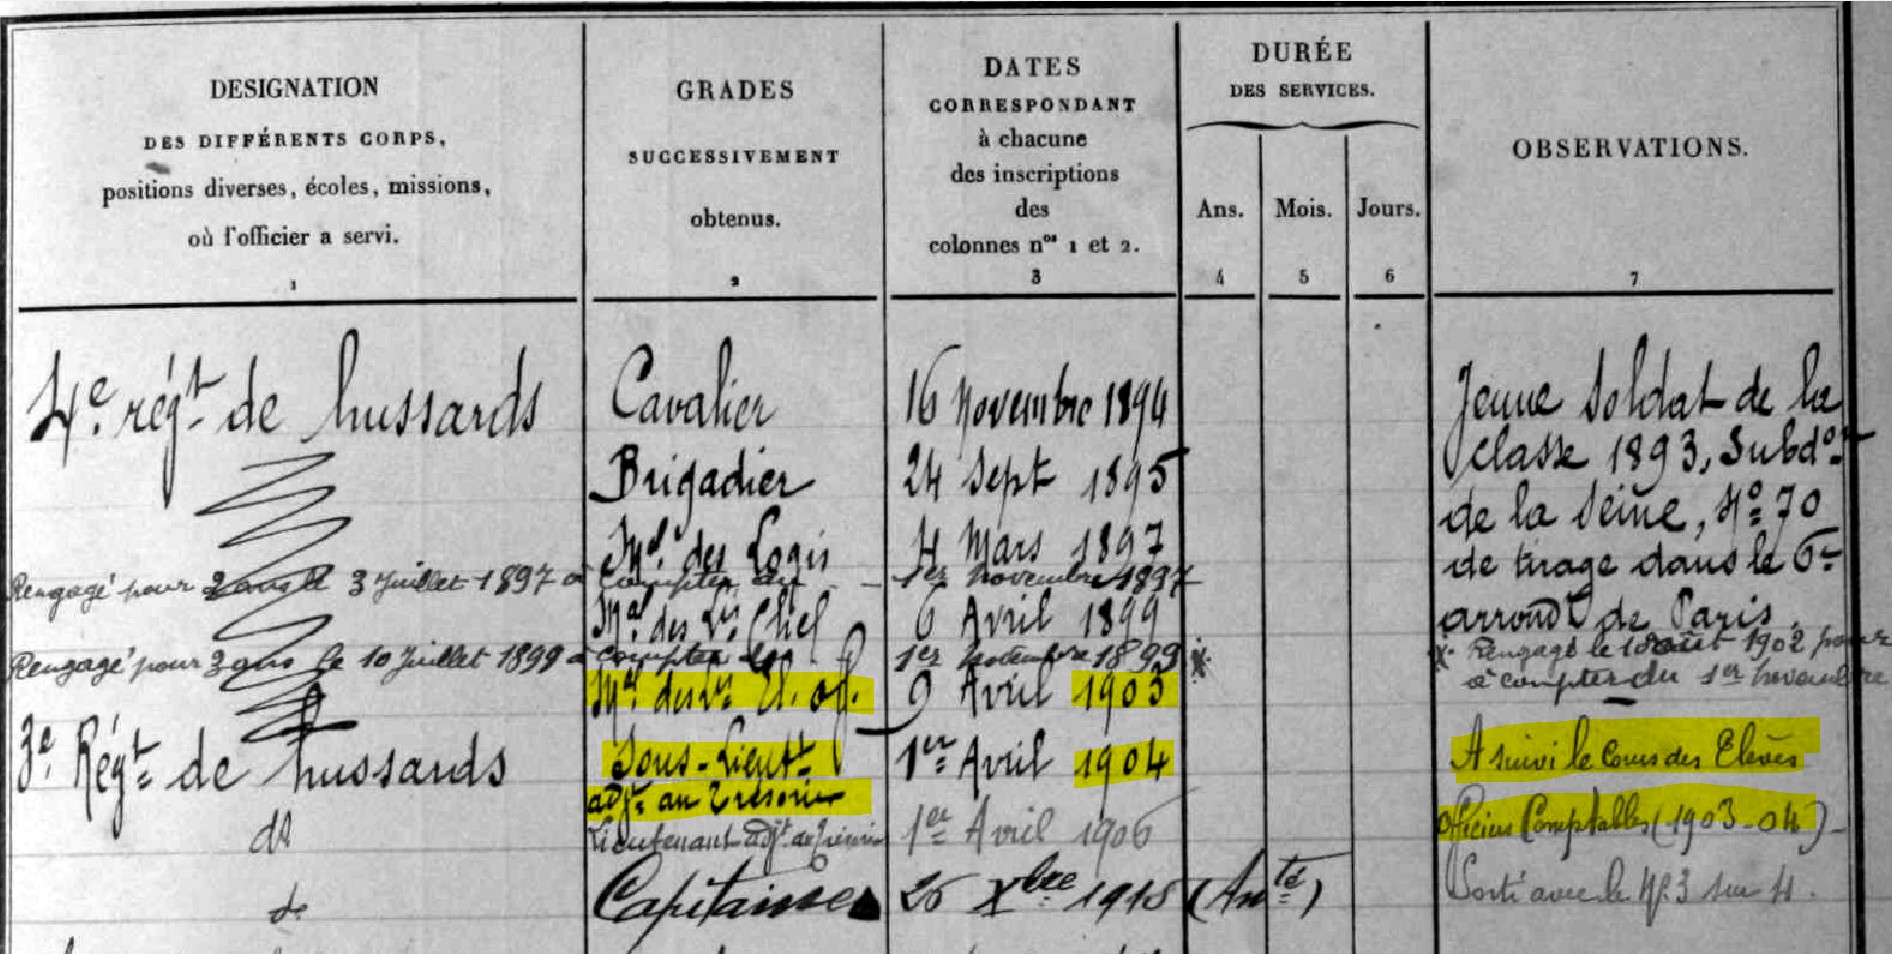 DESIGNATION
DES DIFFÉRENTS CORPS,
positions diverses, écoles, missions,
où l'officier a servi.
1
GRADES
SUCCESSIVEMENT
obtenus.
2
DATES
CORRESPONDANT
à chacune
des inscriptions
des
colonnes nos 1 et 2.
3
DURÉE
DES SERVICES.
Ans. Mois. Jours.
4 5 6
OBSERVATIONS.
7
4e régt de hussards Cavalier 16 Novembre 1894
Brigadier 24 Sept 1895
Mal des Logis 4 Mars 1897
Rengagé pour 2 ans le 3 Juillet 1897 à compter du 1er Novembre 1897
Mal des Lis Chef 6 Avril 1899
Rengagé pour 3 ans le 10 Juillet 1899 à compter du 1er Novembre 1899 x
Mal des Lis El. of. 9 Avril 1903
3e Régt de hussards Sous-Lieutt 1er Avril 1904
adjt au Trésorier
do Lieutenant adjt au Trésorier 1er Avril 1906
do Capitaine 26 Xbre 1915 (Anté)
Jeune Soldat de la
classe 1893, Subdon
de la Seine, No 70
de tirage dans le 6e
arrondt de Paris.
x Rengagé le 1902 pour
à compter du 1er novembre
A suivi le Cours des Elèves
Officiers Comptables (1903-04)
Sorti avec le No 3 sur 4.